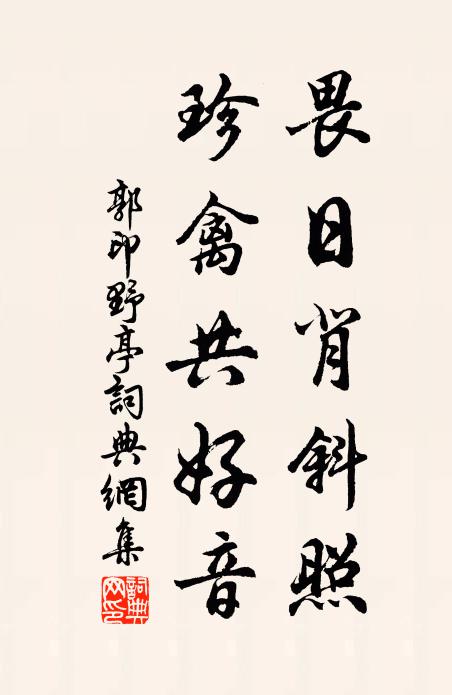 畏日肯斜照
珍禽共好音
郭印野亭詞典網集
詞典网印